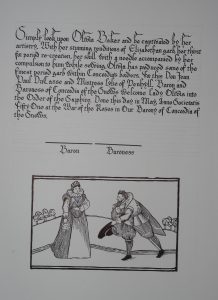 Simply look upon Olivia Baker and be captivated by her
artistry. With her stunning renditions of Elizabethan garb, her thirst
for period re-creation, her skill with a needle accompanied by her
compassion to sew while selling, Olivia has produced some of the
finest period garb within Concordia's borders. For this Don Jean
Paul DuCasse and Mistress Isolde of Penhyll, Baron and
Baroness of Concordia of the Snows welcome Lady Olivia into
the Order of the Sapphire. Done this day in May, Anno Societatis
Fifty One at the War of the Roses in Our Barony of Concordia of
the Snows.
Baron Baroness